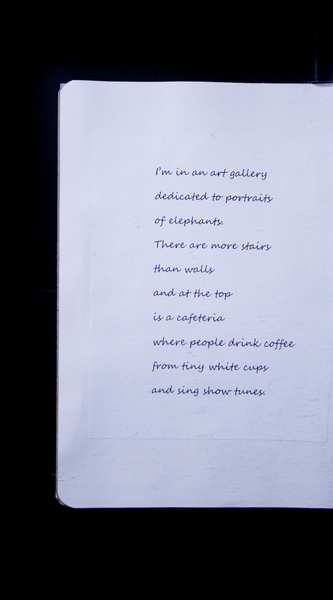 I'm in an art gallery
dedicated to portraits
of elephants.
There are more stairs
than walls
and at the top
is a cafeteria
where people drink coffee
from tiny white cups
and sing show tunes.